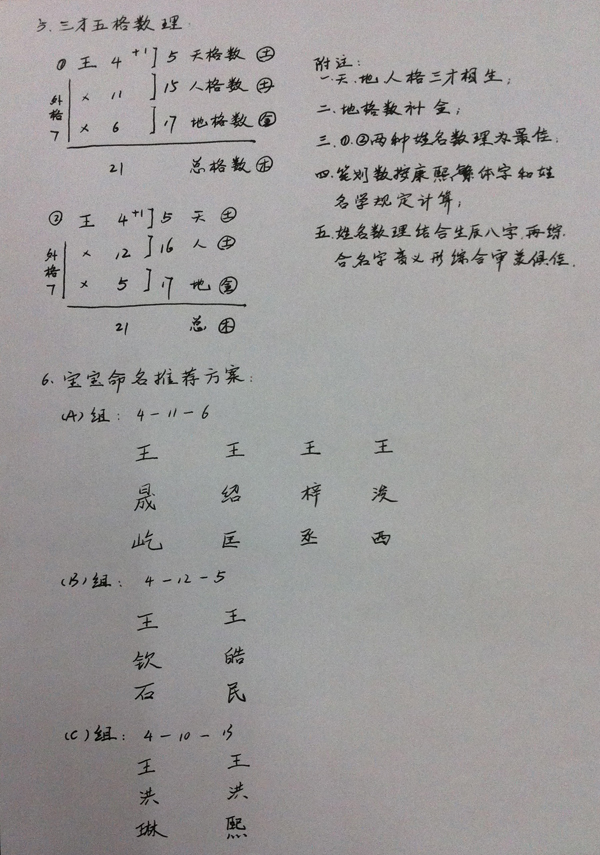 5. 三才五格数理
① 王 4 +1 ] 5 天格数 土
× 11 ] 15 人格数 土
外格 7
× 6 ] 17 地格数 金
21 总格数 木
② 王 4 +1 ] 5 天 土
× 12 ] 16 人 土
外格 7
× 5 ] 17 地 金
21 总 木
附注:
一.天.地人格三才相生;
二.地格数补金;
三.①.②两种姓名数理为最佳;
四.笔划数按康熙,繁体字和姓
名学规定计算;
五.姓名数理结合生辰八字.再综
合名字音义形综合审美俱佳.
6. 宝宝命名推荐方案:
(A)组: 4-11-6
王 王 王 王
晟 绍 梓
屹 匡 丞 西
(B)组: 4-12-5
王 王
钦 皓
石 民
(C)组: 4-10-13
王 王
洪 洪
琳 熙